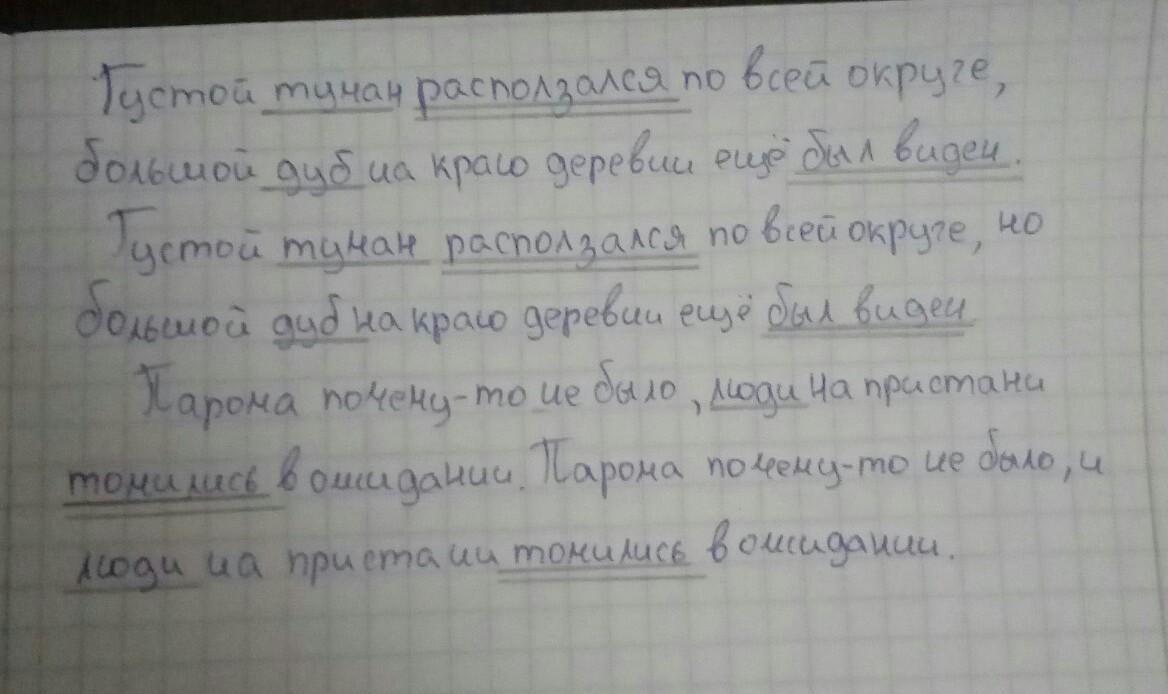 Густой туман расползался по всей округе,
большой дуб на краю деревни ещё был виден.
Густой туман расползался по всей округе, но
большой дуб на краю деревни ещё был виден
Парома почему-то не было, люди на пристани
томились в ожидании. Парома почему-то не было, и
люди на пристани томились в ожидании.